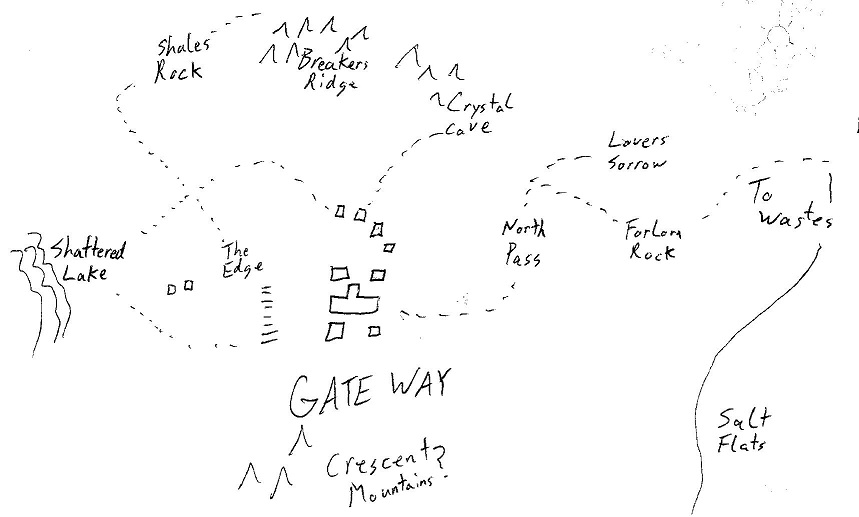 Shales
Rock
Breakers
Ridge
Crystal
Cave
Lovers
Sorrow
To
Wastes
North
Pass
Forlorn
Rock
Shattered
Lake
The
Edge
GATE WAY
Crescent?
Mountains
Salt
Flats